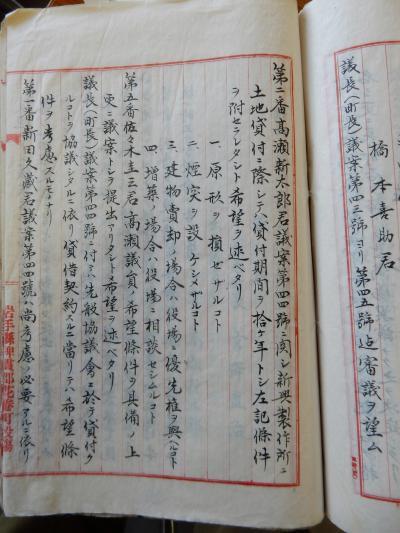 橋本喜助君
議長(町長)議案第四三號ヨリ第四五號迄審議ヲ望ム
第二番高瀬新太郎君議案第四四號ニ関シ新興製作所ニ
土地貸付ニ際シテハ貸付期間ヲ拾ケ年トシ左記條件
ヲ附セラレタシト希望ヲ述ベタリ
一、原形ヲ損セザルコト
二、煙突ヲ設ケシメザルコト
三、建物賣却ノ場合ハ役場ニ優先権ヲ與ヘルコト
四、増築ノ場合ハ役場ニ相談セシムルコト
第五番佐々木圭三君高瀬議員ノ希望條件ヲ具備ノ上
更ニ議案トシテ提出アリタシト希望ヲ述ベタリ
議長(町長)議案第四四號ニ付テハ先般協議會ニ於テ貸付ク
ルコトヲ協議シタルニ依リ貸借契約スルニ當リテハ希望條
件ヲ考慮スルモノナリ
第一番新田久藏君議案第四四號ハ尚考慮ノ必要アルニ依リ
岩手縣稗貫郡花巻町役場